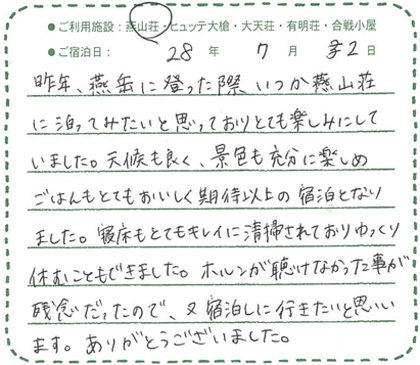 ●ご利用施設：燕山荘・ヒュッテ大槍・大天荘・有明荘・合戦小屋
●ご宿泊日： 28 年 7 月 32 日
昨年、燕岳に登った際、いつか燕山荘
に泊ってみたいと思っておりとても楽しみにして
いました。天候も良く、景色も充分に楽しめ
ごはんもとてもおいしく期待以上の宿泊となり
ました。寝床もとてもキレイに清掃されておりゆっくり
休むこともできました。ホルンが聴けなかった事が
残念だったので、又宿泊しに行きたいと思い
ます。ありがとうございました。